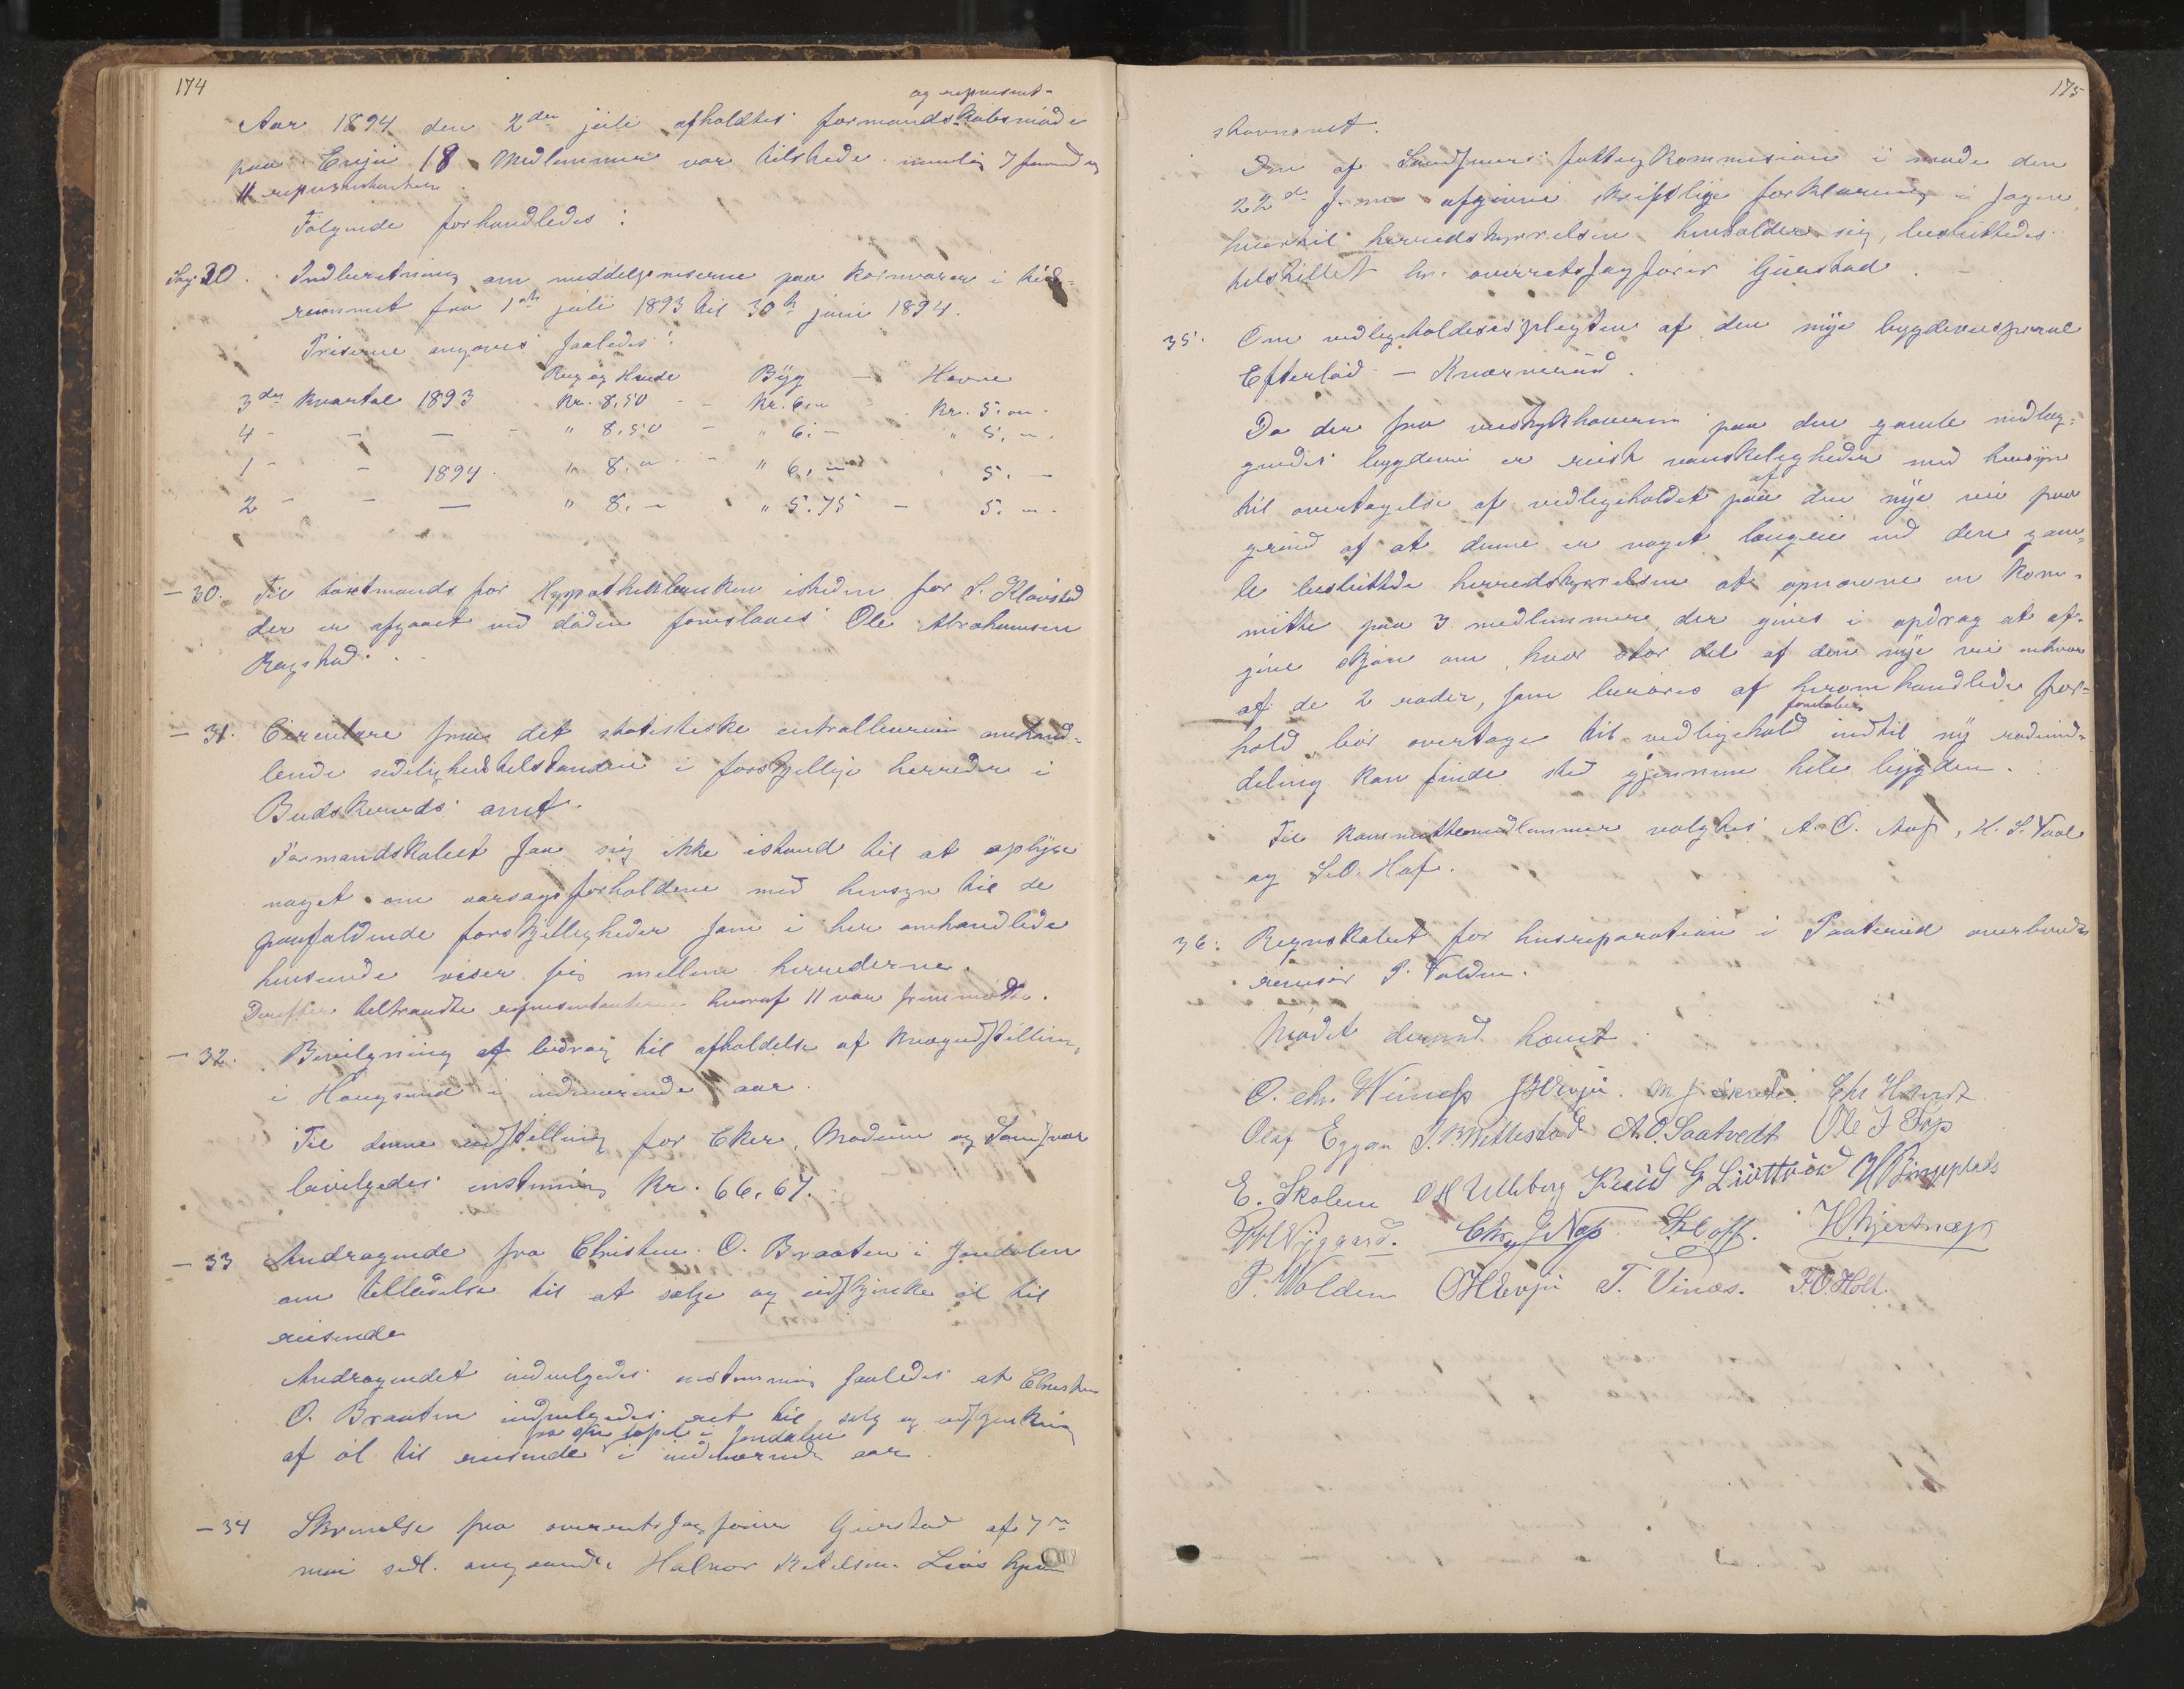 174
og represent-
Aar 1894 den 2den juli afholdtes formandskabsmøde
paa Evju 18 Medlemmer var tilstede nemlig 7 formænd og
11 representanter.
Følgende forhandledes:
Sag 30. Indberetning om middelpriserne paa kornvarer i tids-
rummet fra 1ste juli 1893 til 30te juni 1894.
Priserne angaves saaledes:
Rug og Hvede Byg – Havre
3die kvartal 1893 Kr. 8,50 – Kr. 6,– Kr. 5,–
4 – – – " 8,50 – " 6,– " 5,–
1 – – 1894 " 8,– – " 6,– 5,–
2 – – – " 8,– " 5.75 – 5,–
– 30. Til taxtmand for Hypothekbanken isteden for S. Kløvstad
der er afgaaet ved døden foresloges Ole Abrahamsen
Bagstad.
– 31. Circulære fra det statistiske centralbureau omhand-
lende sedelighedstilstanden i forskjellige herreder i
Buskeruds amt.
Formandskabet saa sig ikke istand til at oplyse
noget om aarsagsforholdene med hensyn til de
paafaldende forskjelligheder som i her omhandlede
henseende viser sig mellem herrederne.
Derefter tiltraadte representanterne hvoraf 11 var fremmødte.
– 32. Bevilgning af bidrag til afholdelse af kvægudstilling
i Hougsund i indeværende aar.
Til denne udstilling for Eker, Modum og Sandsvær
bevilgedes enstemmig Kr. 66,67.
– 33 Andragende fra Christen O. Braaten i Jondalen
om tilladelse til at sælge og udskjænke øl til
reisende
Andragendet indvilgedes enstemmig saaledes at Christen
O. Braaten indvilgedes ret til salg og udskjenkning
fra sin kapel i Jondalen
af øl til reisende i indeværende aar.
– 34 Skrivelse fra overretssagfører Gurstad af 7de
mai sidl. angaaende Halvor Ketelsen Liøs hjem
175
stavnsret.
Den af Sandsværs fattigkommision i møde den
22de s. m. afgivne skriftlige forklaring i sagen,
hvortil herredstyrelsen henholder sig, besluttedes
tilstillet hr. overretssagfører Gurstad.
35. Om vedligeholdelsespligten af den nye bygdeveisparcel
Efterlød – Kværnerud.
Da der fra veistykhaverne paa den gamle nedlag-
gendes bygdevei er reist vanskeligheder med hensyn
til overtagelse af vedligeholdet paa af den nye vei paa
grund af at denne er noget længere end den gam-
le besluttede herredstyrelsen at opnævne en kom-
mitte paa 3 medlemmer, der gives i opdrag at af-
give skjøn om, hvor stor del af den nye vei enhver
af de 2 roder, som berøres af herom handlede for-
foreløbig
hold bør overtage til vedligehold indtil ny rodeind-
deling kan finde sted gjennem hele bygden.
Til kommittemedlemmer valgtes A. O. Aas, H. S. Foole
og S. O. Hof.
36. Regnskabet for husreparation i Pauterud overbordes
revisor P. Volden.
Mødet dermed hævet
O. Chr. Winess JHEvju. M J Skrede. Chr Handt
Olaf Eggen S. B Mittestad A. O. Saatvedt Ole J Fos
E. Skolem O H Ulleberg Knud G Livttvød
HHNygaard. Chr J Nøs S. O. Hoff. H. Hjertnæs
P. Wolden OHEvju T. Vinæs. F. O. Holt.